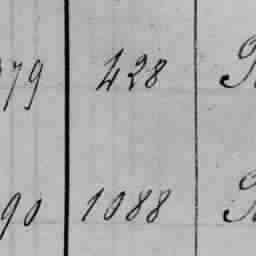 79 428
90 1088